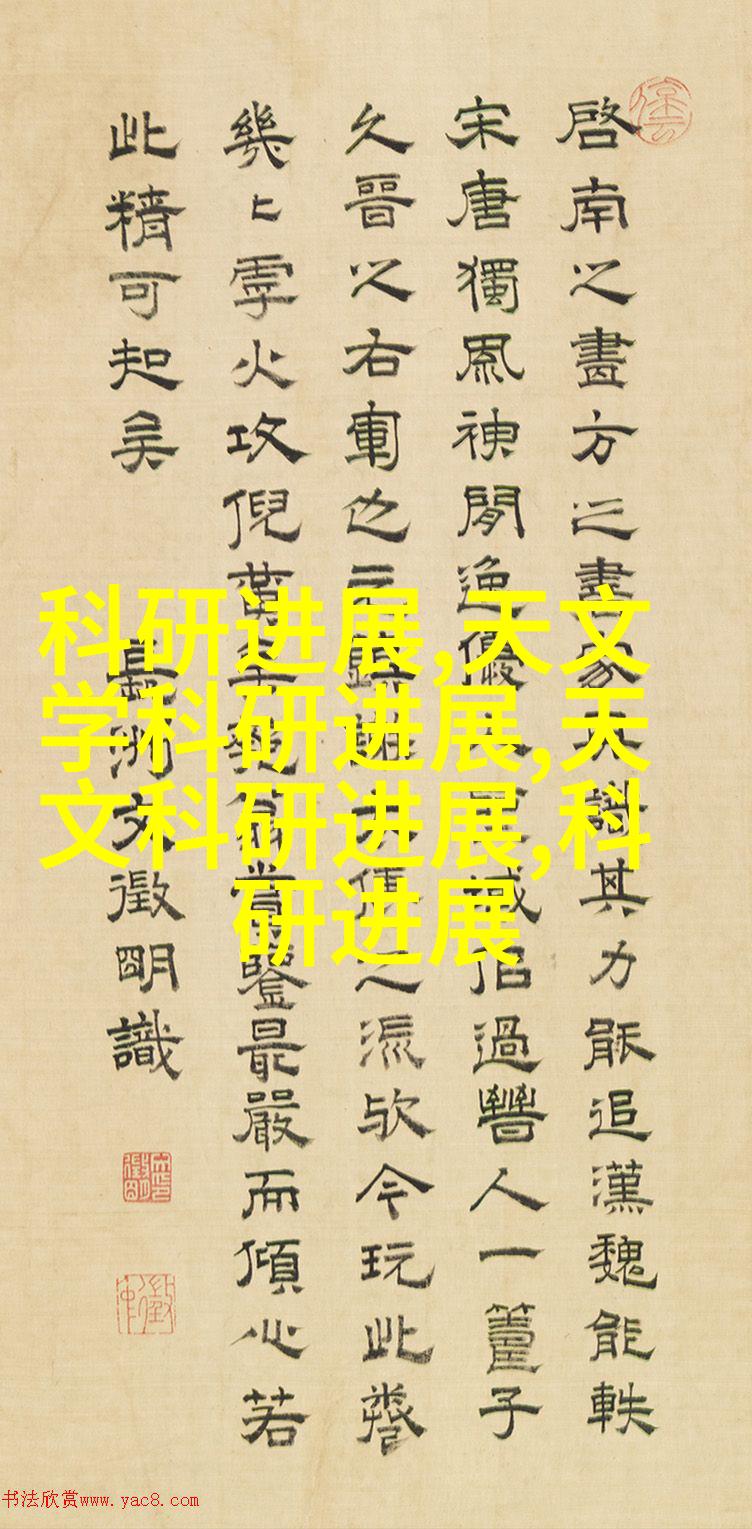 啓南之畫方之畫家其力能追漢魏能軼
宋唐獨風神閒逸優域佀過人一籌子
久晉之右軍也之流歟今玩此卷
幾〻虖火攻倪萬賞鑒最嚴而傾心若
此精可知矣
長洲文徵明識
科研进展,天文
学科研进展,天
文科研进展,科
研进展
书法欣赏www.yac8.com